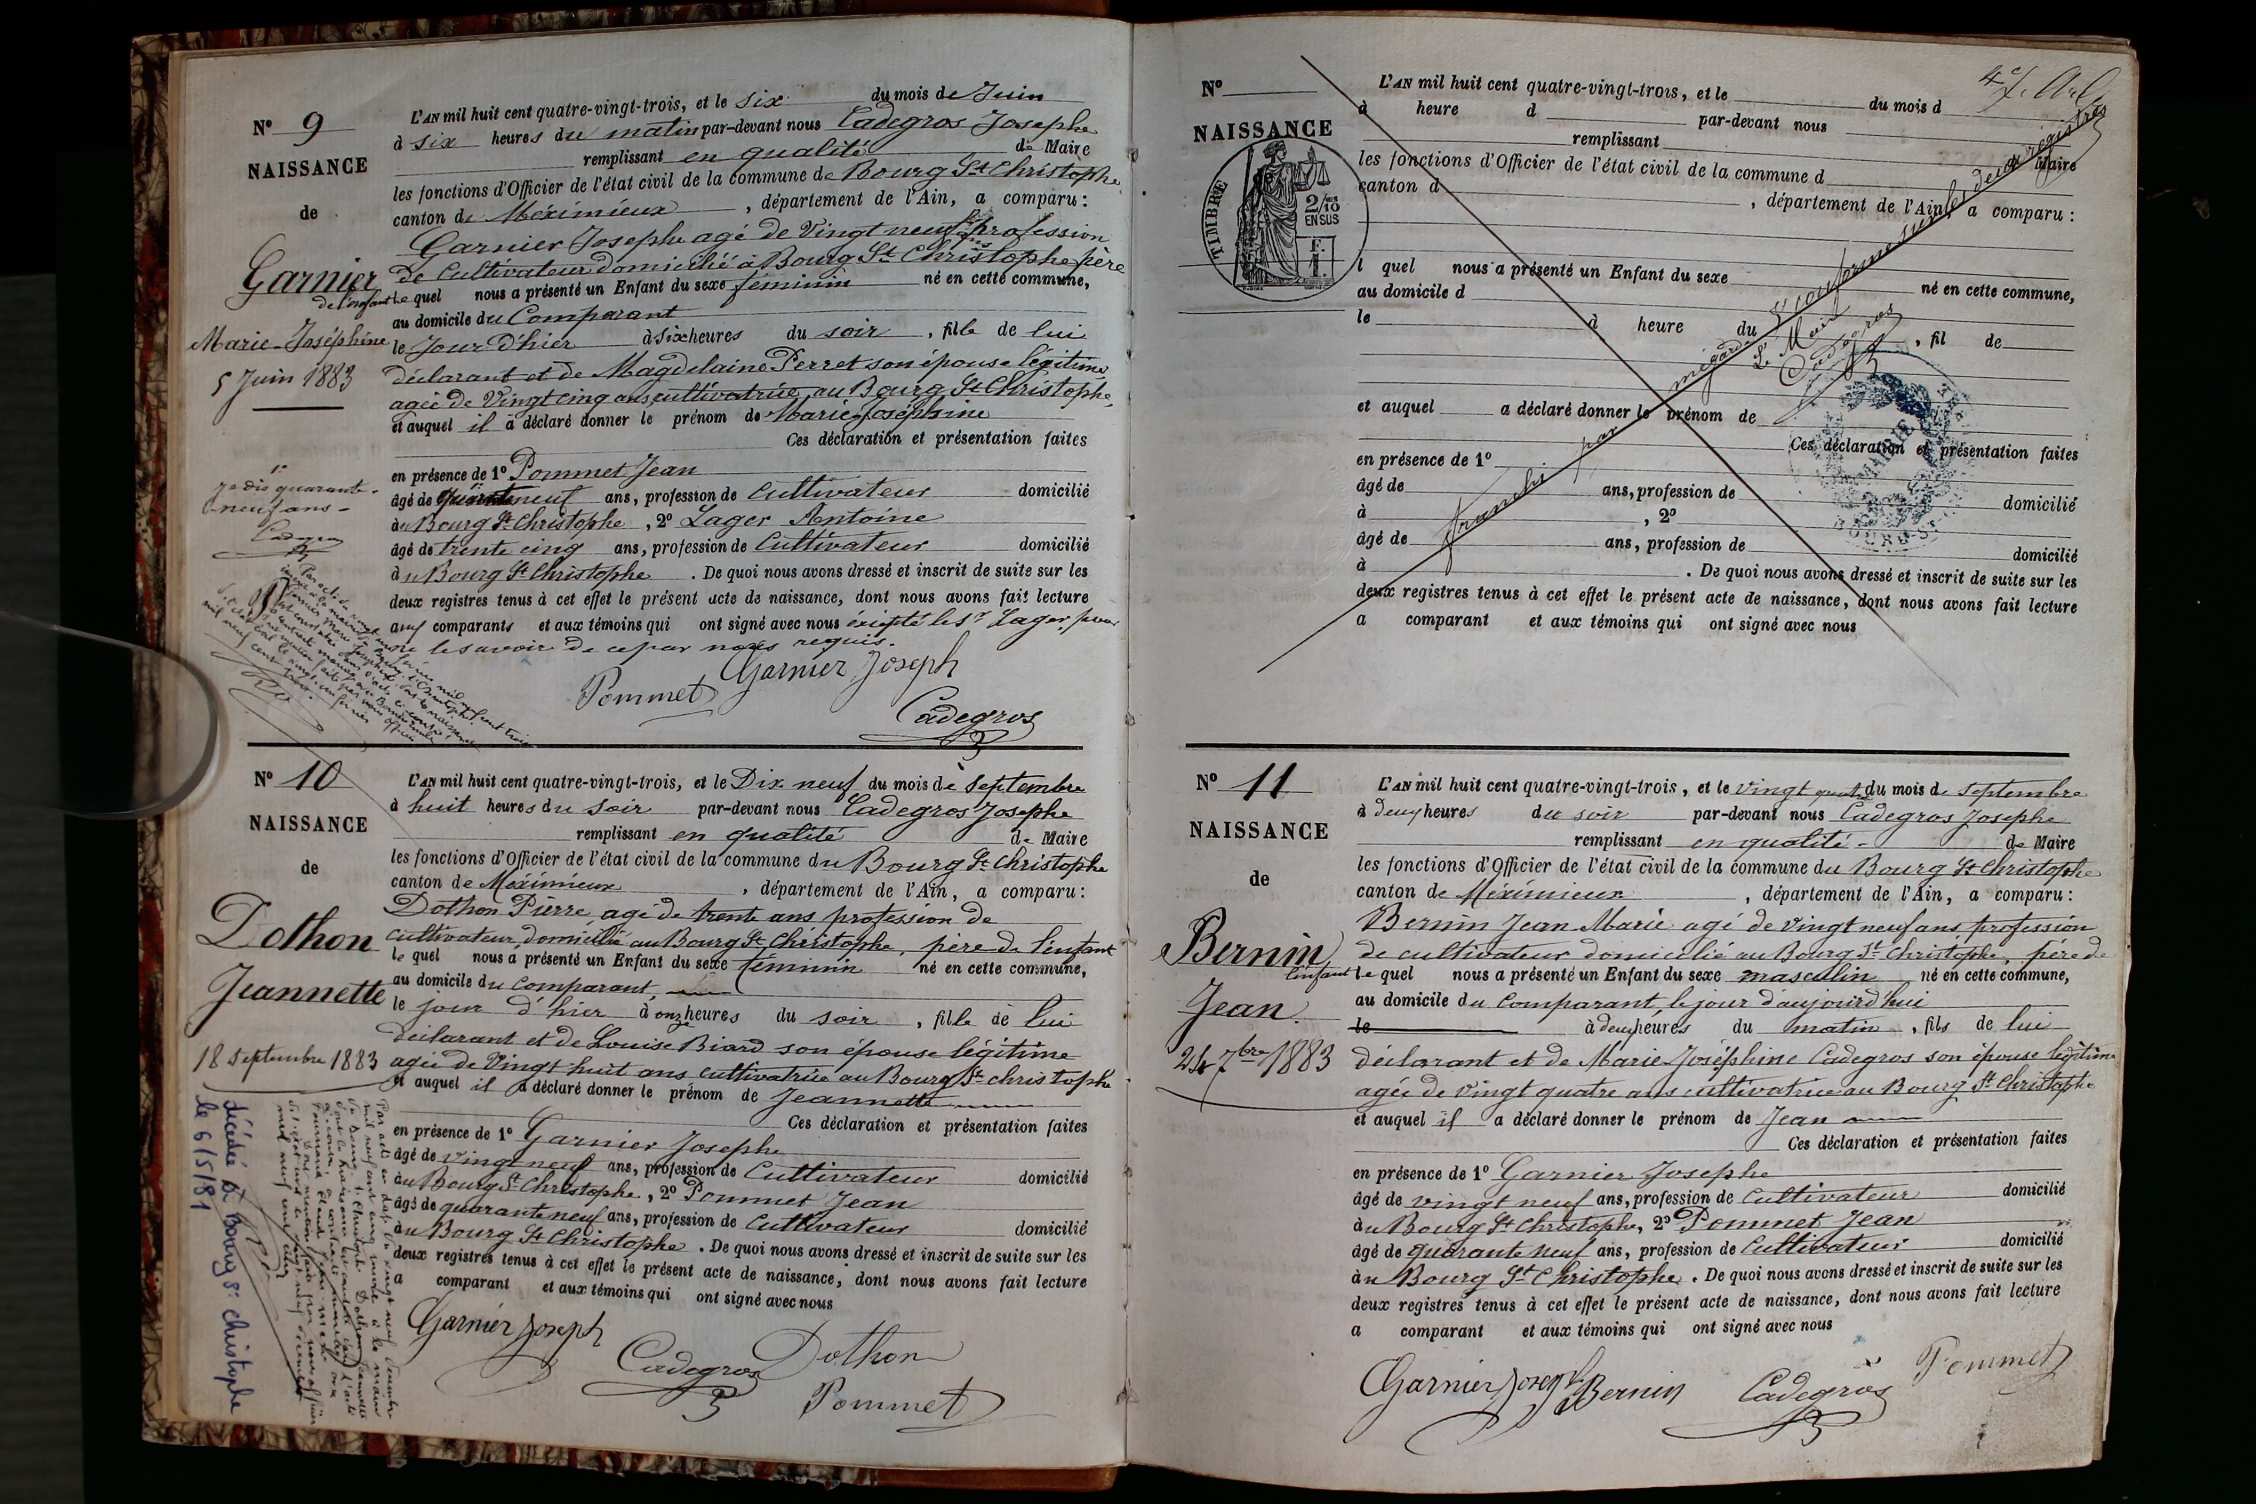 N° 9
NAISSANCE
de
Garnier
Marie-Joséphine
5 Juin 1883
L'AN mil huit cent quatre-vingt-trois, et le six du mois de Juin
à six heures du matin par-devant nous Cadegros Josephe
remplissant en qualité de Maire
les fonctions d'Officier de l'état civil de la commune de Bourg St Christophe
canton de Méximieux, département de l'Ain, a comparu :
Garnier Josephe agé de Vingt neuf ans profession
de Cultivateur domicilié à Bourg St Christophe père
de l'enfant le quel nous a présenté un Enfant du sexe féminin né en cette commune,
au domicile du Comparant
le Jour d'hier à six heures du soir, fille de lui
déclarant et de Magdelaine Perret son épouse légitime
agée de Vingt cinq ans cultivatrice au Bourg St Christophe,
et auquel il a déclaré donner le prénom de Marie Joséphine
Ces déclaration et présentation faites
en présence de 1° Pommet Jean
âgé de neuf ans, profession de Cultivateur domicilié
au Bourg St Christophe, 2° Lager Antoine
âgé de trente cinq ans, profession de Cultivateur domicilié
au Bourg St Christophe. De quoi nous avons dressé et inscrit de suite sur les
deux registres tenus à cet effet le présent acte de naissance, dont nous avons fait lecture
aux comparants et aux témoins qui ont signé avec nous excepté le sr Lager pour
ne le savoir de ce par nous requis.
je dis quarante
neuf ans -
Cadegros
Garnier Joseph
Pommet
Cadegros
N° 10
NAISSANCE
de
Dothon
Jeannette
18 Septembre 1883
L'AN mil huit cent quatre-vingt-trois, et le Dix neuf du mois de Septembre
à huit heures du soir par-devant nous Cadegros Josephe
remplissant en qualité de Maire
les fonctions d'Officier de l'état civil de la commune du Bourg St Christophe
canton de Méximieux, département de l'Ain, a comparu :
Dothon Pierre agé de trente ans profession de
cultivateur, domicilié au Bourg St Christophe, père de l'enfant
le quel nous a présenté un Enfant du sexe féminin né en cette commune,
au domicile du comparant,
le jour d'hier à onze heures du soir, fille de lui
déclarant et de Louise Biard son épouse légitime
agée de Vingt huit ans cultivatrice au Bourg St christophe
et auquel il a déclaré donner le prénom de Jeannette
Ces déclaration et présentation faites
en présence de 1° Garnier Josephe
âgé de vingt neuf ans, profession de Cultivateur domicilié
au Bourg St Christophe, 2° Pommet Jean
âgé de quarante neuf ans, profession de Cultivateur domicilié
au Bourg St Christophe. De quoi nous avons dressé et inscrit de suite sur les
deux registres tenus à cet effet le présent acte de naissance, dont nous avons fait lecture
a comparant et aux témoins qui ont signé avec nous
décédée à Bourg St christophe
le 6/5/81
Garnier Joseph
Cadegros
Dothon
Pommet
N°
NAISSANCE
TIMBRE
2/10
EN SUS
F.
1.
L'AN mil huit cent quatre-vingt-trois, et le du mois d
à heure d par-devant nous
remplissant Maire
les fonctions d'Officier de l'état civil de la commune d
canton d, département de l'Ain, a comparu :
l quel nous a présenté un Enfant du sexe né en cette commune,
au domicile d
le à heure du, fil de
et auquel a déclaré donner le prénom de
Ces déclaration et présentation faites
en présence de 1°
âgé de ans, profession de domicilié
à, 2°
âgé de ans, profession de domicilié
à. De quoi nous avons dressé et inscrit de suite sur les
deux registres tenus à cet effet le présent acte de naissance, dont nous avons fait lecture
a comparant et aux témoins qui ont signé avec nous
franchi par
Le Maire
Cadegros
MAIRIE
N° 11
NAISSANCE
de
Bernin
Jean
24 7bre 1883
L'AN mil huit cent quatre-vingt-trois, et le vingt quatre du mois de septembre
à deux heures du soir par-devant nous Cadegros Josephe
remplissant en qualité - de Maire
les fonctions d'Officier de l'état civil de la commune du Bourg St Christophe
canton de Méximieux, département de l'Ain, a comparu :
Bernin Jean Marie agé de vingt neuf ans profession
de cultivateur domicilié au Bourg St Christophe, père de
l'enfant le quel nous a présenté un Enfant du sexe masculin né en cette commune,
au domicile du comparant, le jour d'aujourd'hui
le à deux heures du matin, fils de lui
déclarant et de Marie Joséphine Cadegros son épouse légitime
agée de vingt quatre ans cultivatrice au Bourg St Christophe
et auquel il a déclaré donner le prénom de Jean
Ces déclaration et présentation faites
en présence de 1° Garnier Josephe
âgé de vingt neuf ans, profession de Cultivateur domicilié
au Bourg St Christophe, 2° Pommet Jean
âgé de quarante neuf ans, profession de Cultivateur domicilié
au Bourg St Christophe. De quoi nous avons dressé et inscrit de suite sur les
deux registres tenus à cet effet le présent acte de naissance, dont nous avons fait lecture
a comparant et aux témoins qui ont signé avec nous
Garnier Joseph
Bernin
Cadegros
Pommet